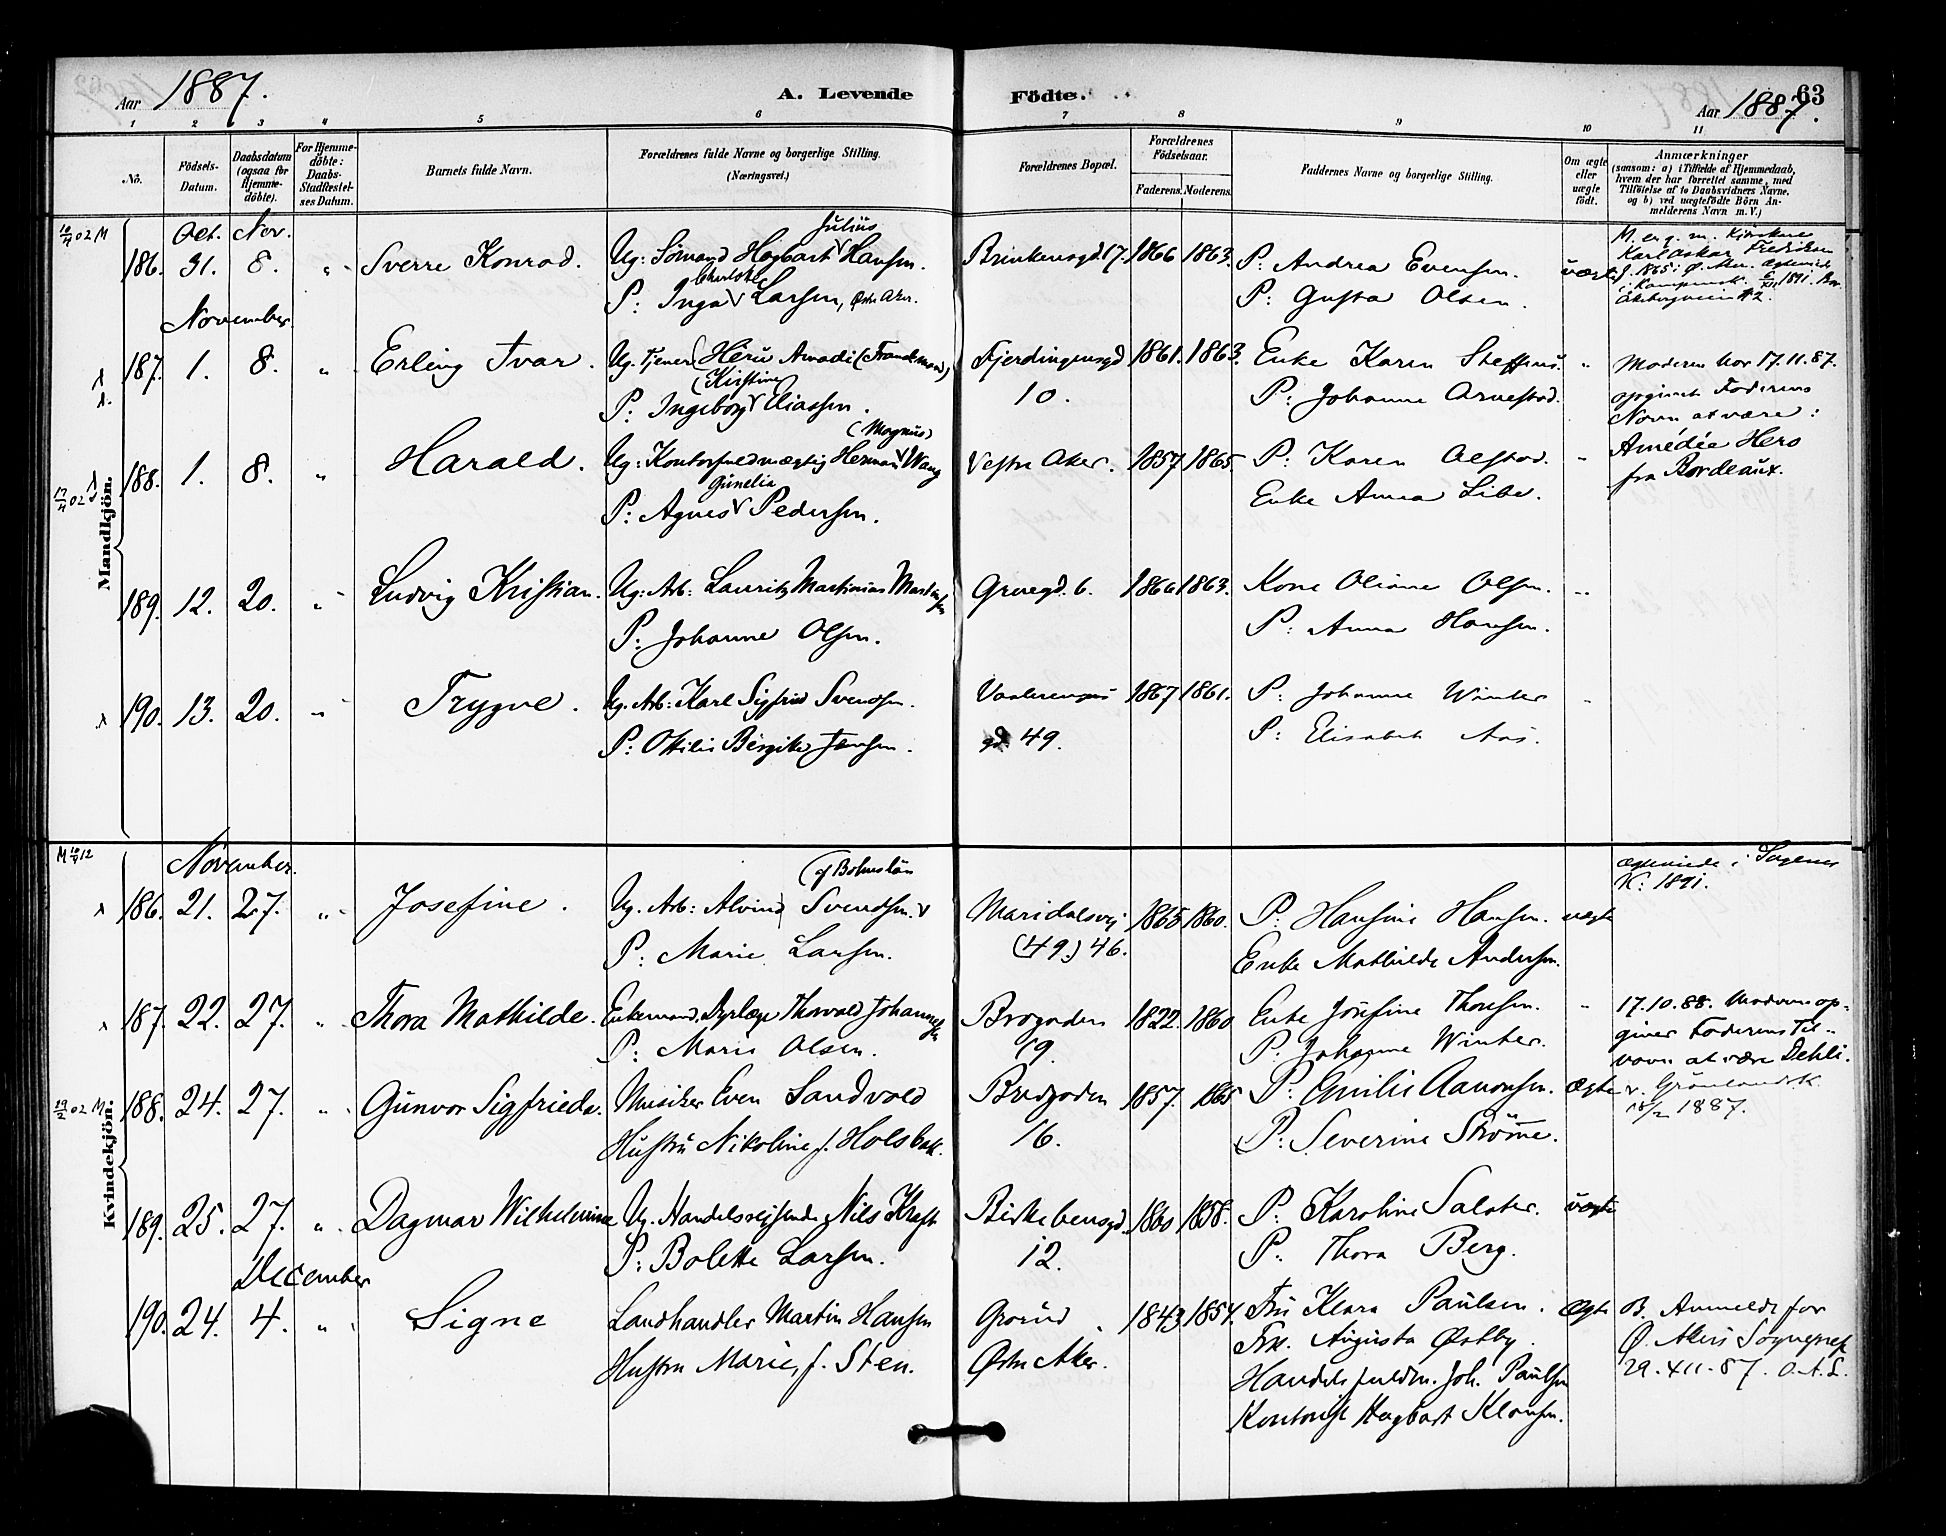 Aar 1887.
A. Levende Födte.
Aar 1887.
63
1 2 3 4 5 6 7 8 9 10 11
No.
Födsels-Datum.
Daabsdatum (ogsaa for Hjemme-döbte).
For Hjemme-döbte: Daabs-Stadfæstel-ses Datum.
Barnets fulde Navn.
Forældrenes fulde Navne og borgerlige Stilling.
(Næringsvei.)
Forældrenes Bopæl.
Forældrenes Födselsaar.
Faderens. Moderens.
Faddernes Navne og borgerlige Stilling.
Om ægte eller uægte født.
Anmærkninger
(saasom: a) i Tilfælde af Hjemmedaab,
hvem der har forrettet samme, med
Tilföielse af to Daabsvidners Navne,
og b) ved uægtefödte Börn An-
melderens Navn m. V.)
Mandkjön.
Oct. Nov.
186. 31. 8. " Sverre Konrad. Ug: Sömand Hagbart Julius Hansen.
P: Inga Charlotte Larsen, Østre Aker.
Brinkensgd 17. 1866 1863.
P: Andrea Evensen. uægte
P: Gusta Olsen.
November
187. 1. 8. " Erling Ivar. Ug. Tjener (Héru Amadé (Franskmand)
P: Ingeborg (Kirstine) Eliassen.
Fjerdingensgd 10. 1861. 1863.
Enke Karen Steffens. "
P: Johanne Arnestad.
Moderen har 17.11.87.
opgivet Faderens
Navn at være:
Amédée Hero
fra Bordeaux.
188. 1. 8. " Harald. Ug: Kontorfuldmægtig Herman (Magnus) Wang
P: Agnes Gunelia Pedersen.
Vestre Aker. 1857 1865.
P: Karen Alstad. "
Enke Anna Libe.
189. 12. 20. " Ludvig Kristian. Ug: Arb: Lauritz Martinius Martinsen
P: Johanne Olsen.
Gruegd. 6. 1866 1863.
Kone Oliane Olsen. "
P: Anna Hansen.
190. 13. 20. " Trygve. Ug. Arb: Karl Sigfrid Svendsen.
P: Ottilie Birgitte Jensen.
Vaalerengens gd. 49. 1867 1861.
P: Johanne Winter "
P: Elisabet Aas.
Kvindekjön.
November.
186. 21. 27. " Josefine. Ug. Arb: Alvind Svendsen (af Bohuslän
P: Marie Larsen.
Maridalsvej (49.) 46. 1865 1860.
P. Hansine Hansen. uægte
Enke Mathilde Andersen.
Ægteviede i Sagenes
K: 1891.
187. 22. 27. " Thora Mathilde. Enkemand. Dyrlæge Thorvald Johannesen
P: Marie Olsen.
Brogaden 19. 1822. 1860
Enke Josefine Thoresen. "
P. Johanne Winter.
17.10.88. Moderen op-
giver Faderens Til-
navn at være Dehli.
188. 24. 27. " Gunvor Sigfrieda. Musiker Even Sandvold
Hustru Nikoline f. Holsbæk.
Bredgaden 16. 1857. 1865
P: Emilie Aanonsen. Ægte
P: Severine Strömme.
v. Grönlandsk.
1887.
189. 25. 27. " Dagmar Wilhelmine Ug. Handelsrejsende Nils Kraft
P: Bolette Larsen.
Birkebensgd. 12. 1860 1858.
P: Karoline Salater. uægte
P. Thora Berg.
December
190. 24. 4. " Signe Landhandler Martin Hansen
Hustru Marie, f. Sten.
Grorud Østre Aker. 1843 1854.
Fru Klara Paulsen. Ægte
Frk. Augusta Østby.
Handelsfuldm. Joh. Paulsen
Kontorist Hagbart Klausen.
B. Anmeldt for
Ø. Akers Sognepræst
29.XII.87. O.A.S.